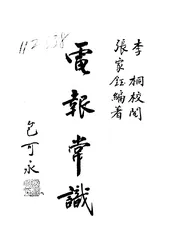 李桐校閱
張家鈺編著
電報常識
包可永